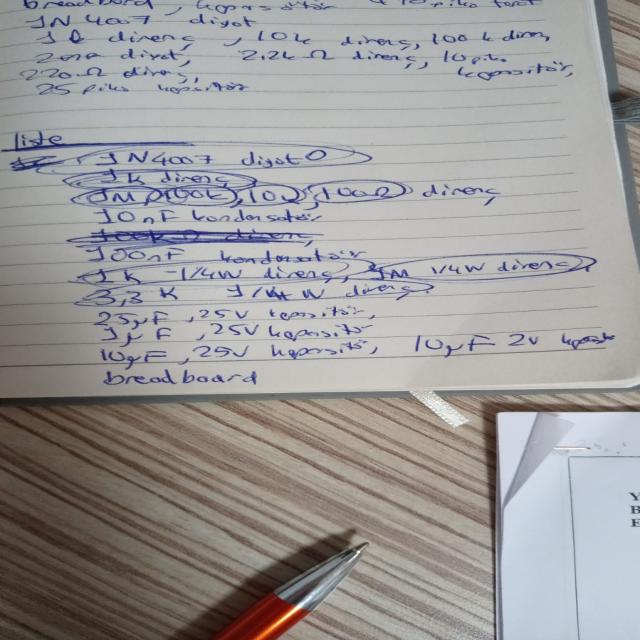 breadboard, kapasitör
1N 4007 diyot
1Ω direnç, 10k direnç, 100k direnç
2.2kΩ direnç, 10 piko kapasitör,
220Ω direnç,
25 piko kapasitör
liste
1N4007 diyot
1k direnç
1M, 100k, 10Ω, 100Ω direnç
10nF kondansatör
100nF kondansatör
1K -1/4W direnç, 1M 1/4W direnç,
3,3K 1/4W direnç
25µF, 25V kapasitör,
1µF, 25V kapasitör
10µF, 25V kapasitör, 10µF 2V
breadboard
Y
B
E